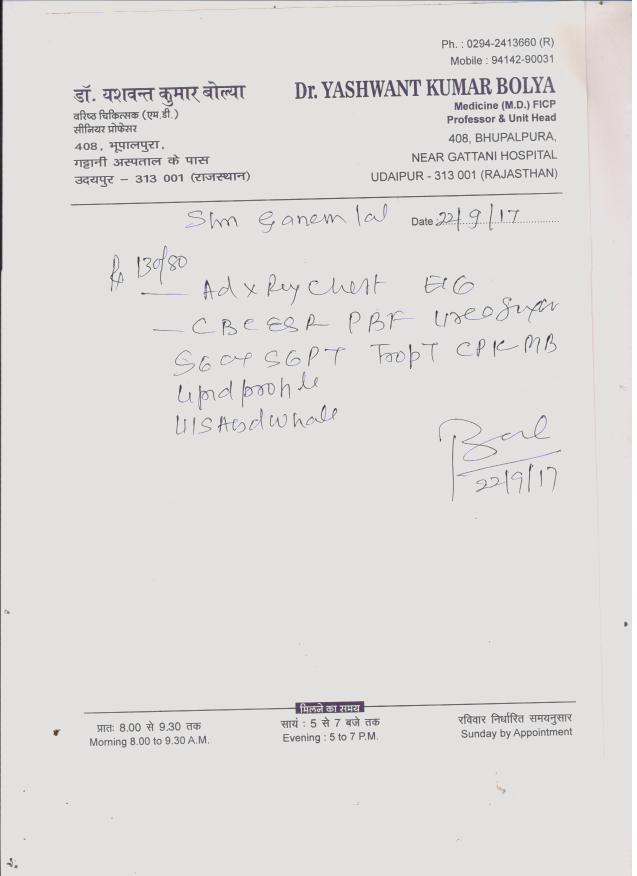 Ph. : 0294-2413660 (R)
Mobile : 94142-90031
डॉ. यशवन्त कुमार बोल्या
वरिष्ठ चिकित्सक (एम.डी.)
सीनियर प्रोफेसर
408, भूपालपुरा,
गट्टानी अस्पताल के पास
उदयपुर – 313 001 (राजस्थान)
Dr. YASHWANT KUMAR BOLYA
Medicine (M.D.) FICP
Professor & Unit Head
408, BHUPALPURA,
NEAR GATTANI HOSPITAL
UDAIPUR - 313 001 (RAJASTHAN)
Date : 22/9/17
130/80
Ad x Ray Chest
CBC ESR PBF
SGOT SGPT TropT CPK MB
Lipid profile
22/9/17
मिलने का समय
प्रातः 8.00 से 9.30 तक
Morning 8.00 to 9.30 A.M.
सायं : 5 से 7 बजे तक
Evening : 5 to 7 P.M.
रविवार निर्धारित समयनुसार
Sunday by Appointment